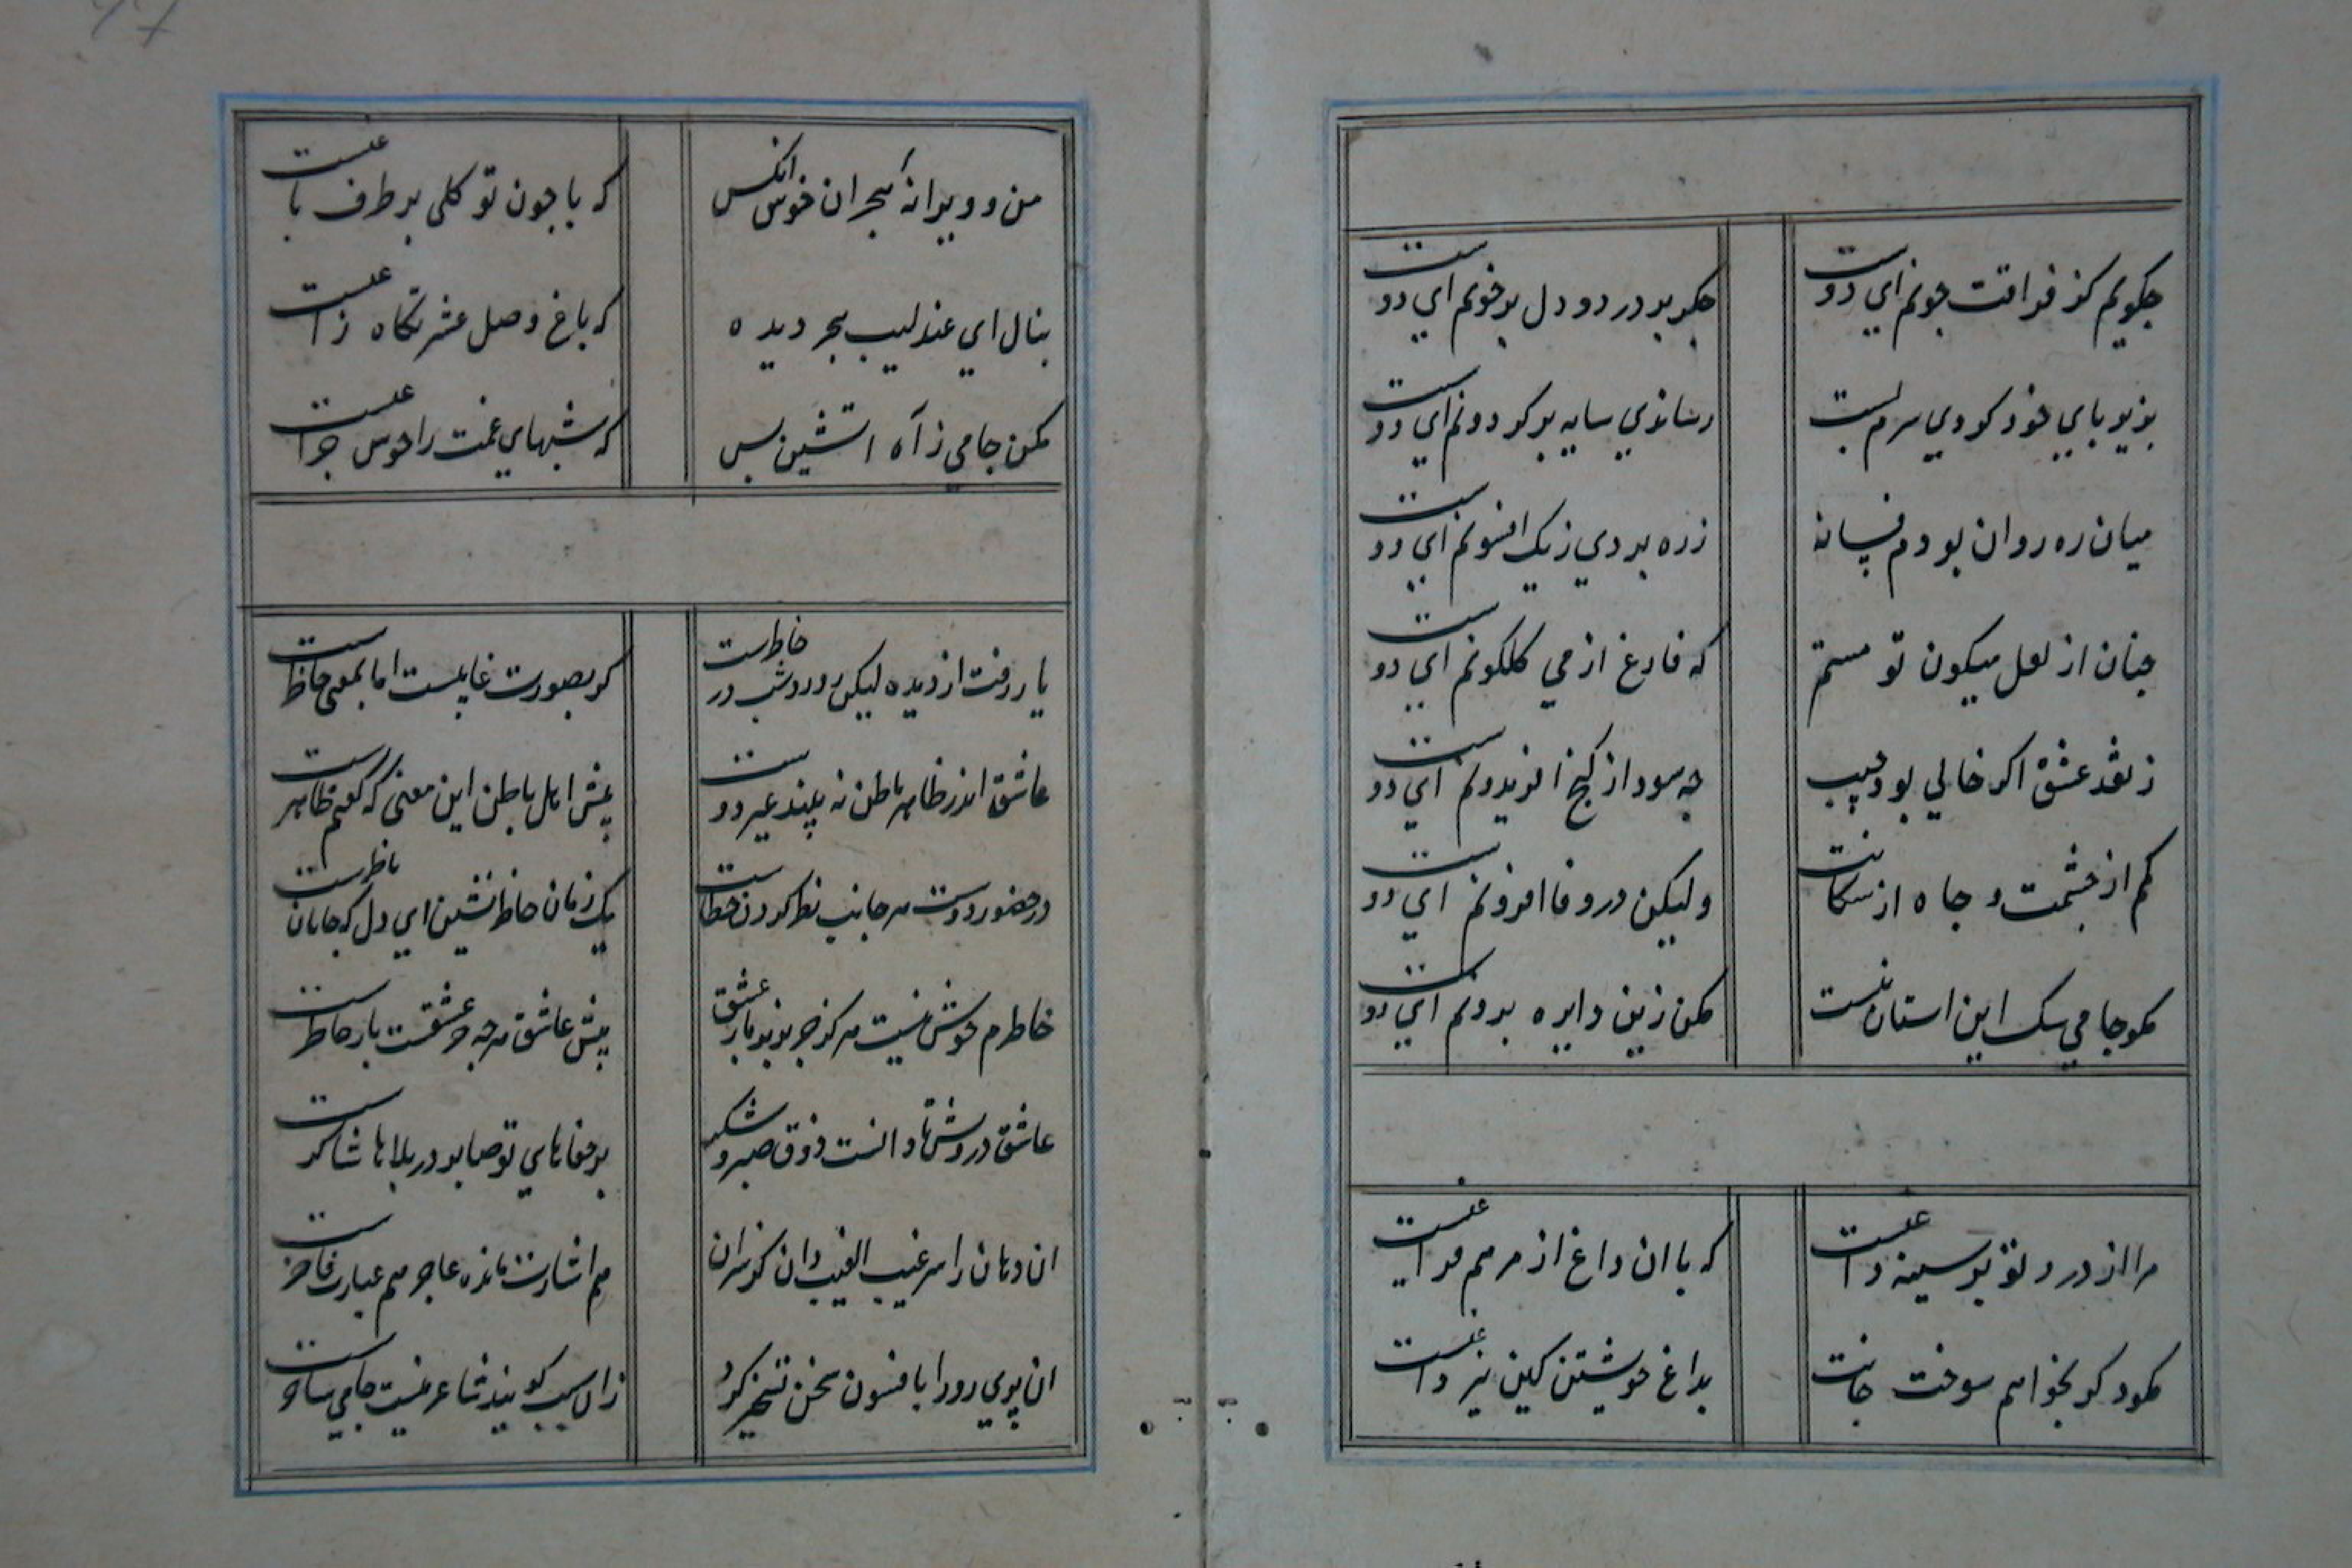 چکویم کز فراقت جونم ای دوست
جکر بر درد و دل بر خونم ای دوست
بزیر بای خود کردی سرم بست
رساندی سایه بر کردونم ای دوست
میان ره روان بودم فسانه
ز ره بردی ز یک افسونم ای دوست
جنان از لعل میکون تو مستم
که فارغ از می کلکونم ای دوست
ز نقد عشق اکر خالی بود جیب
جه سود از کنج افریدونم ای دوست
کم از حشمت و جاه از سکانت
ولیکن در وفا افزونم ای دوست
مکو جامی سک این استان نیست
مکن زین دایره بیرونم ای دوست
مرا از درد تو بر سینه داغیست
که با ان داغ از مرهم فراغیست
مکو دکر نخواهم سوخت جانت
بداغ خویشتن کین نیز داغیست
من و ویرانهٔ هجران خوش انکس
که با جون تو کلی بر طرف باغیست
بنال ای عندلیب هجر دیده
که باغ وصل عشرتکاه زاغیست
مکن جامی ز آه اتشین بس
که شبهای غمت را خوش جراغیست
یار رفت از دیده لیکن روز و شب در خاطرست
کر بصورت غایبست اما بمعنی حاظرست
عاشق اندر ظاهر و باطن نه بیند غیر دوست
بیش اهل باطن این معنی که کفتم ظاهرست
در حضور دوست هر جانب نظر کردن خطاست
یک زمان حاظر نشین ای دل که جانان ناظرست
خاطرم خوش نیست هرکز جز بزیر بار عشق
بیش عاشق هرجه جز عشقست بار خاطرست
عاشق درویش تا دانست ذوق صبر و شکر
بر جفاهای تو صابر در بلاها شاکرست
ان دهان را سر غیب الغیب دان کز سر ان
هم اشارت مانده عاجز هم عبارت قاصرست
ان پری رو را بافسون سخن تسخیر کرد
زان سبب کویند شاعر نیست جامی ساحرست